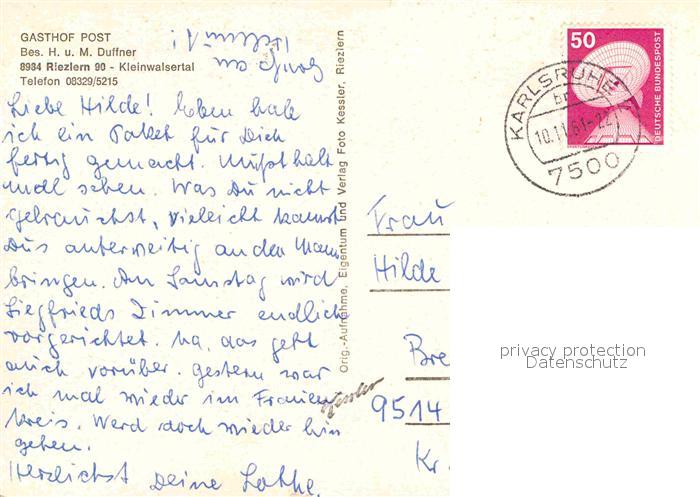 GASTHOF POST
Bes. H. u. M. Duffner
8984 Riezlern 90 - Kleinwalsertal
Telefon 08329/5215
Liebe Hilde! Soeben habe
ich ein Paket für Dich
fertig gemacht. Mußt halt
mal sehen. Was Du nicht
gebrauchst, vielleicht kannst
Du's anderweitig an den Mann
bringen. Am Samstag wird
Siegfrieds Zimmer endlich
vorgerichtet. Na, das geht
auch vorüber. Gestern war
ich mal wieder im Frauen
kreis. Werd doch wieder hin
gehen.
Herzlichst Deine Lotte.
Orig.-Aufnahme, Eigentum und Verlag Foto Kessler, Riezlern
Kessler
50
DEUTSCHE BUNDESPOST
KARLSRUHE
10.11.81-22
7500
Frau
Hilde
Bre
9514
Kr.
privacy protection
Datenschutz